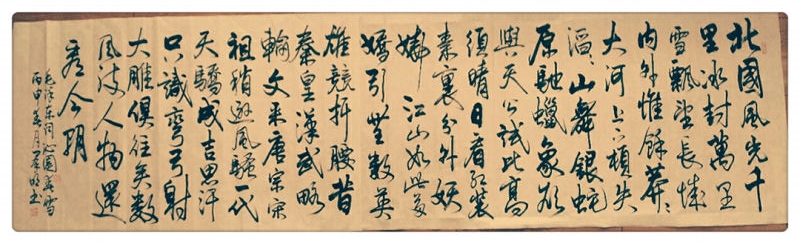 北國風光千
里冰封萬里
雪飄望長城
内外惟餘莽〻
大河上下頓失
滔〻山舞銀蛇
原馳蠟象欲
與天公試比高
須晴日看紅裝
素裹分外妖
嬈江山如此多
嬌引無數英
雄競折腰昔
秦皇漢武略
輸文采唐宗宋
祖稍遜風騷一代
天驕成吉思汗
只識彎弓射
大雕俱往矣數
風流人物還
看今朝
毛澤東詞沁園春雪
丙申春月